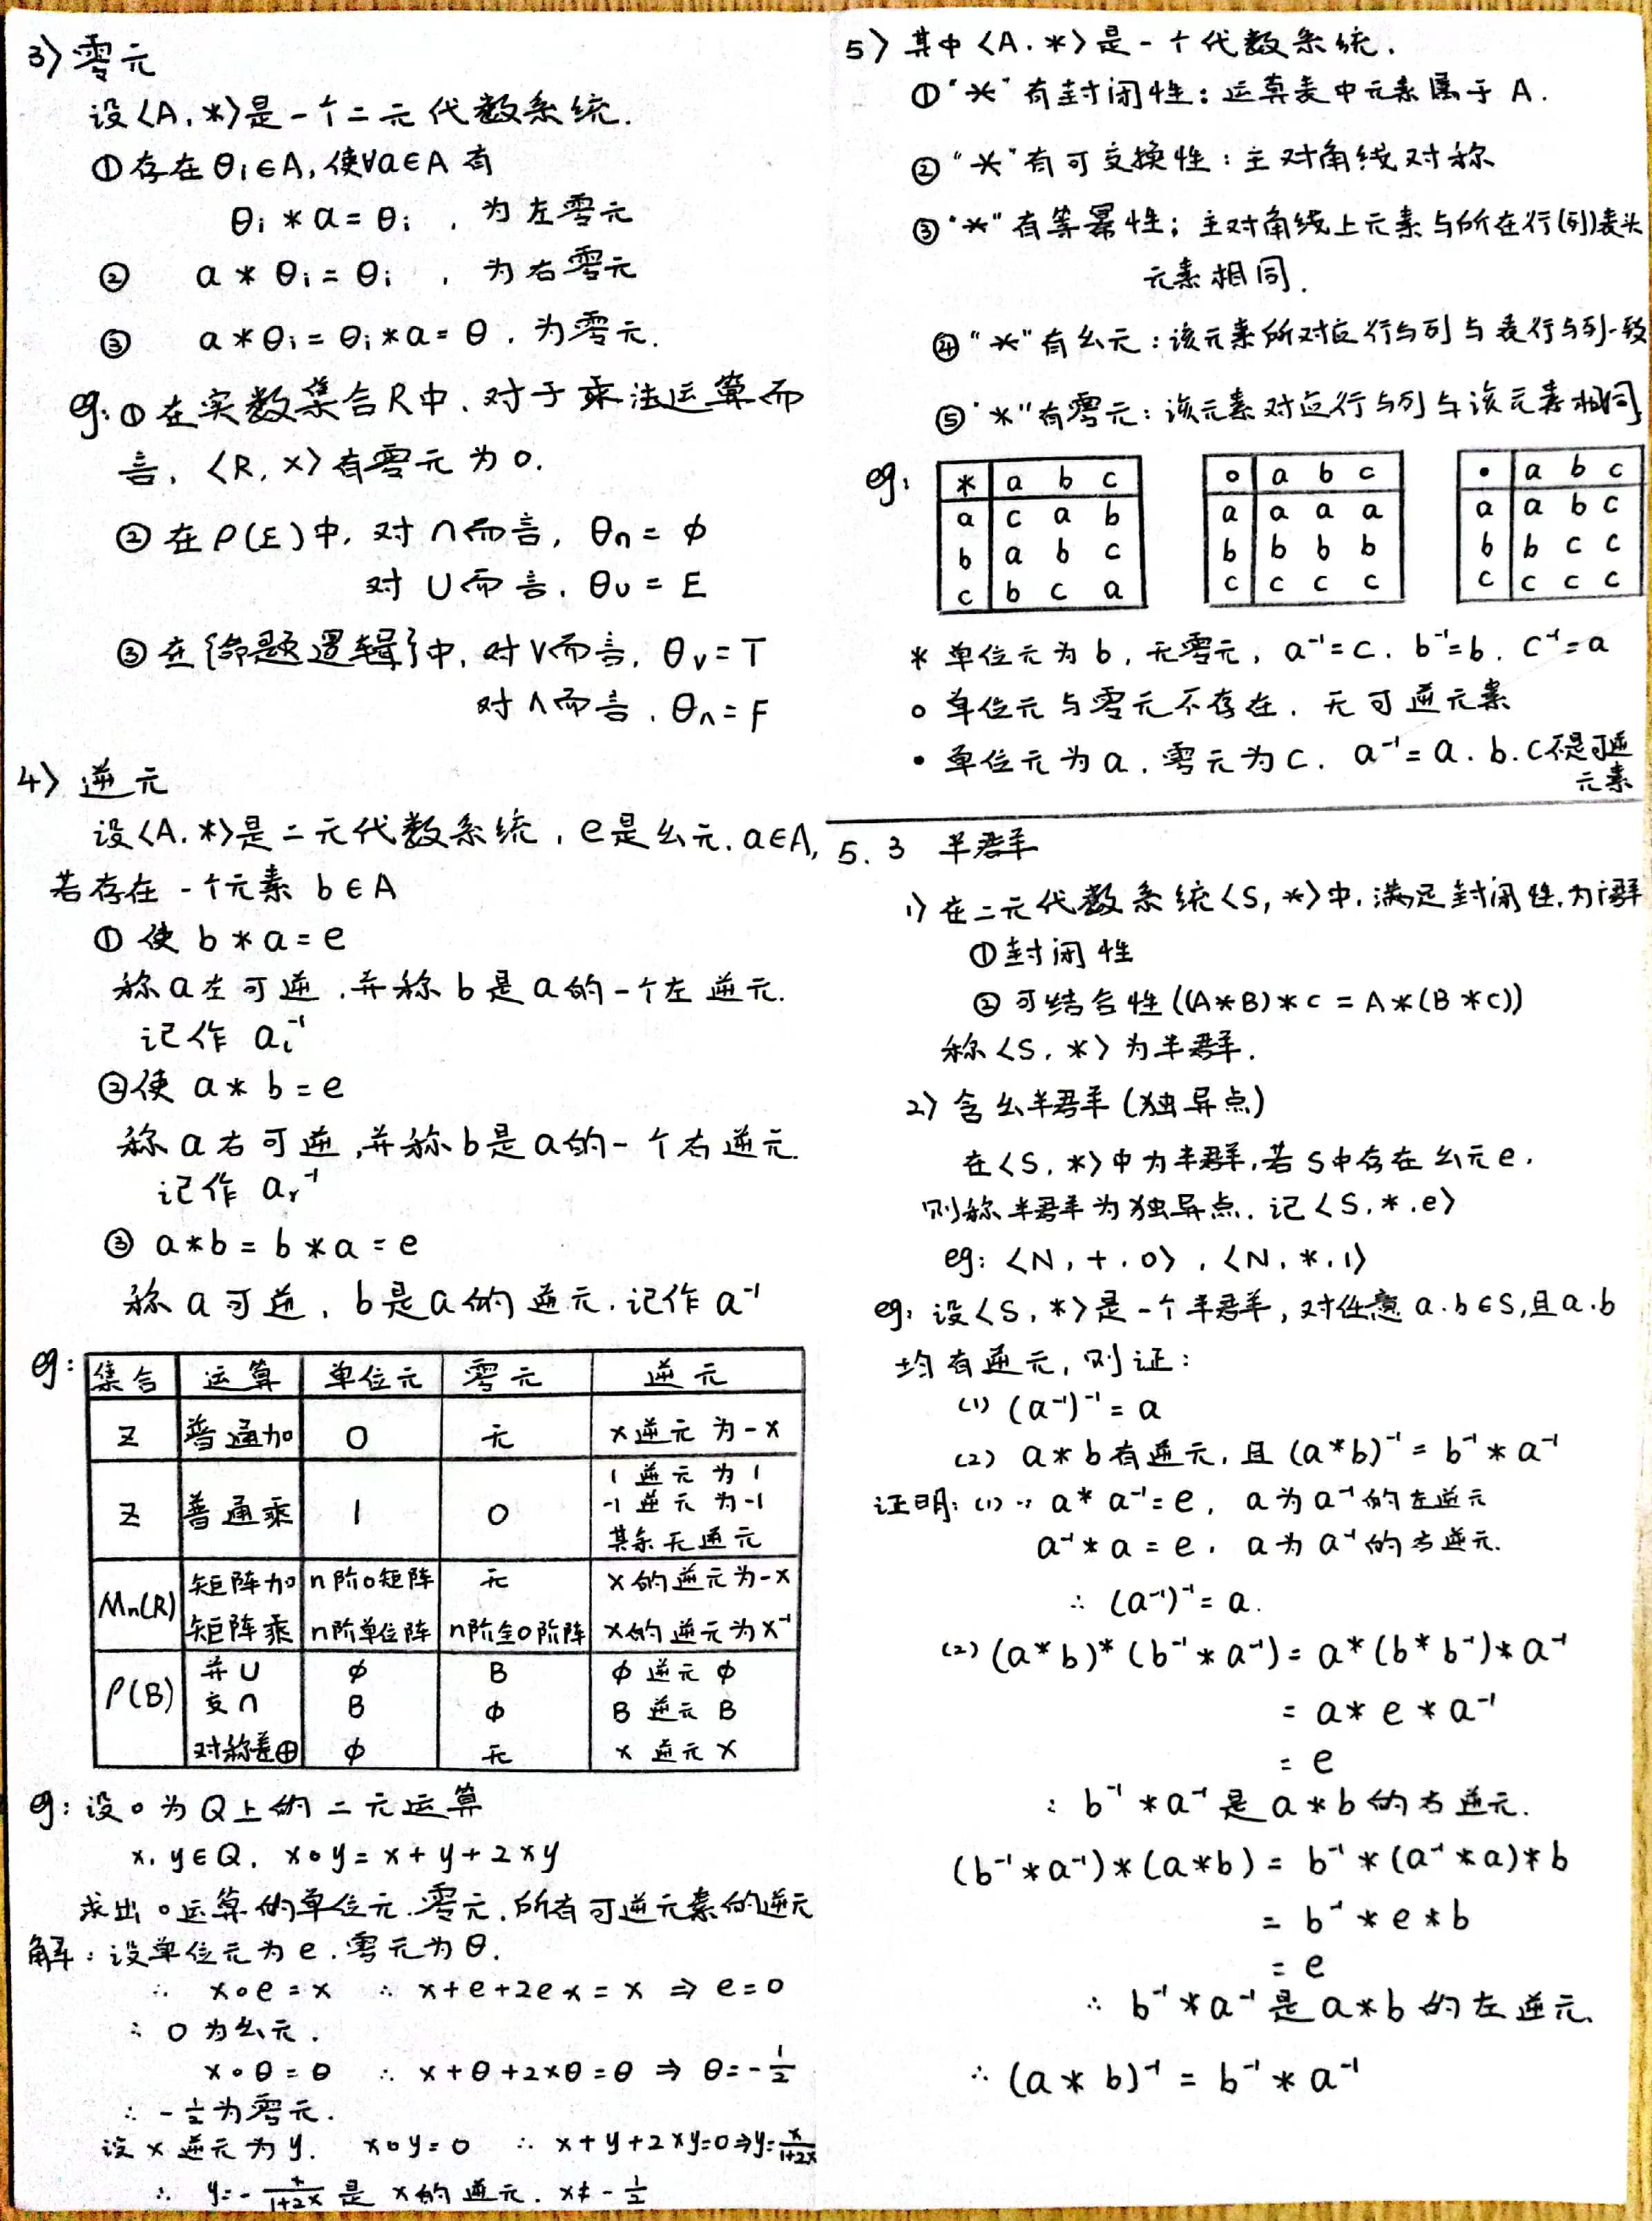 3) 零元
设<A,*>是一个二元代数系统.
①存在θᵢ∈A,使∀a∈A有
θᵢ * a = θᵢ , 为左零元
② a * θᵢ = θᵢ , 为右零元
③ a*θᵢ = θᵢ*a = θ , 为零元.
eg:①在实数集合R中,对于乘法运算而
言,<R,×>有零元为0.
②在P(E)中,对∩而言, θ∩ = φ
对∪而言, θ∪ = E
③在{命题逻辑}中,对∨而言, θ∨ = T
对∧而言, θ∧ = F
4) 逆元
设<A,*>是二元代数系统,e是幺元,a∈A,
若存在一个元素 b∈A
①使 b * a = e
称a左可逆,并称b是a的一个左逆元.
记作 aₗ⁻¹
②使 a * b = e
称a右可逆,并称b是a的一个右逆元.
记作 aᵣ⁻¹
③ a*b = b*a = e
称a可逆, b是a的逆元,记作a⁻¹
eg: 集合 运算 单位元 零元 逆元
Z 普通加 0 无 x逆元为-x
Z 普通乘 1 0 1逆元为1
-1逆元为-1
其余无逆元
Mn(R) 矩阵加 n阶0矩阵 无 X的逆元为-X
矩阵乘 n阶单位阵 n阶全0阶阵 X的逆元为X⁻¹
P(B) 并∪ φ B φ逆元φ
交∩ B φ B逆元B
对称差⊕ φ 无 X逆元X
eg:设∘为Q上的二元运算
x,y∈Q, x∘y = x+y+2xy
求出∘运算的单位元,零元,所有可逆元素的逆元
解:设单位元为e,零元为θ.
∴ x∘e = x ∴ x+e+2ex = x ⇒ e=0
∴ 0为幺元.
x∘θ = θ ∴ x+θ+2xθ=θ ⇒ θ=-1/2
∴ -1/2为零元.
设x逆元为y. x∘y=0 ∴ x+y+2xy=0⇒y=x/(1+2x)
∴ y=-x/(1+2x) 是x的逆元. x≠-1/2
5) 其中<A,*>是一个代数系统.
①“*”有封闭性:运算表中元素属于A.
②“*”有可交换性:主对角线对称
③“*”有等幂性;主对角线上元素与所在行(列)表头
元素相同.
④“*”有幺元:该元素所对应行与列与表行与列一致
⑤“*”有零元:该元素对应行与列与该元素相同
eg: * a b c ∘ a b c • a b c
a c a b a a a a a a b c
b a b c b b b b b b c c
c b c a c c c c c c c c
* 单位元为b,无零元, a⁻¹=c, b⁻¹=b, c⁻¹=a
∘ 单位元与零元不存在,无可逆元素
• 单位元为a,零元为c, a⁻¹=a, b,c不是可逆
元素
5.3 半群
1) 在二元代数系统<S,*>中,满足封闭性,为广群
①封闭性
②可结合性((A*B)*C = A*(B*C))
称<S,*>为半群.
2) 含幺半群(独异点)
在<S,*>中为半群,若S中存在幺元e,
则称半群为独异点,记<S,*,e>
eg: <N,+,0>,<N,*,1>
eg: 设<S,*>是一个半群,对任意a,b∈S,且a,b
均有逆元,则证:
(1) (a⁻¹)⁻¹ = a
(2) a*b有逆元,且 (a*b)⁻¹ = b⁻¹*a⁻¹
证明: (1) ∵ a*a⁻¹=e, a为a⁻¹的左逆元
a⁻¹*a = e, a为a⁻¹的右逆元.
∴ (a⁻¹)⁻¹ = a.
(2) (a*b)*(b⁻¹*a⁻¹) = a*(b*b⁻¹)*a⁻¹
= a*e*a⁻¹
= e
∴ b⁻¹*a⁻¹是a*b的右逆元.
(b⁻¹*a⁻¹)*(a*b) = b⁻¹*(a⁻¹*a)*b
= b⁻¹*e*b
= e
∴ b⁻¹*a⁻¹是a*b的左逆元.
∴ (a*b)⁻¹ = b⁻¹*a⁻¹